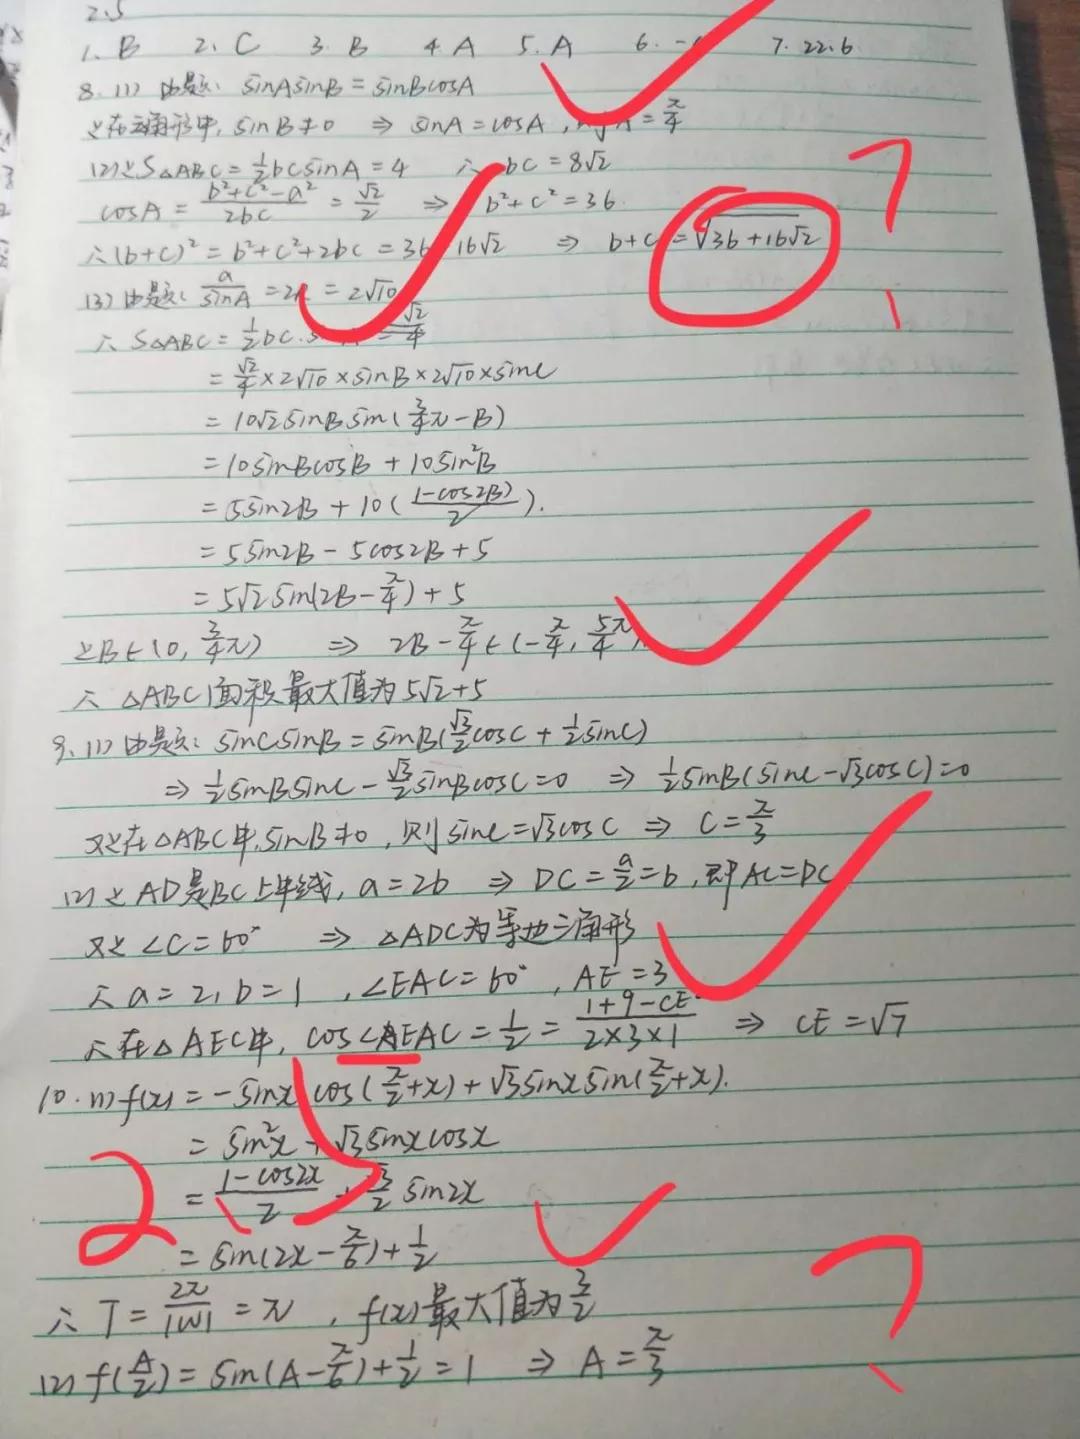 2.5
1. B 2. C 3. B 4. A 5. A 6. - 7. 22.6
8. (1) 由题: sinAsinB = sinBcosA
∵在三角形中, sinB≠0 ⇒ sinA = cosA, = π/4
(2)∵S△ABC = 1/2 bcsinA = 4 ∴ bc = 8√2
cosA = (b²+c²-a²)/2bc = √2/2 ⇒ b²+c² = 36
∴(b+c)² = b²+c²+2bc = 36 16√2 ⇒ b+c = √36+16√2
?
(3) 由题: a/sinA = 2 = 2√10
∴ S△ABC = 1/2 bc·s = √2/4
= √2/4 × 2√10 × sinB × 2√10 × sinC
= 10√2 sinB sin(3/4π - B)
= 10sinBcosB + 10sin²B
= 5sin2B + 10((1-cos2B)/2).
= 5sin2B - 5cos2B + 5
= 5√2 sin(2B - π/4) + 5
∵B∈(0, 3/4π) ⇒ 2B - π/4 ∈ (-π/4, 5/4π)
∴ △ABC面积最大值为5√2+5
9. (1) 由题: sinCsinB = sinB(√3/2 cosC + 1/2 sinC)
⇒ 1/2 sinBsinC - √3/2 sinBcosC = 0 ⇒ 1/2 sinB(sinC - √3cosC) = 0
又∵在△ABC中, sinB≠0, 则sinC = √3cosC ⇒ C = π/3
(2) ∵ AD是BC上中线, a = 2b ⇒ DC = a/2 = b, 即AC = DC
又∵ ∠C = 60° ⇒ △ADC为等边三角形
∴ a = 2, b = 1, ∠EAC = 60°, AE = 3
∴在△AEC中, cos∠AEAC = 1/2 = (1+9-CE)/(2×3×1) ⇒ CE = √7
10. (1) f(x) = -sinx cos(π/2+x) + √3sinxsin(π/2+x).
= sin²x + √3sinxcosx
= (1-cos2x)/2 + √3/2 sin2x
2
= sin(2x - π/6) + 1/2
∴ T = 2π/|W| = π, f(x)最大值为3/2
?
(2) f(A/2) = sin(A - π/6) + 1/2 = 1 ⇒ A = π/3